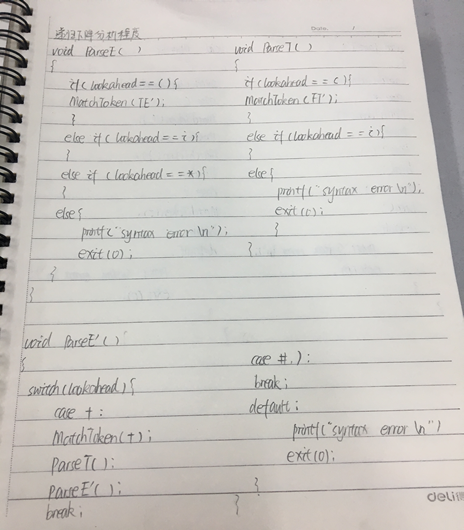 递归下降分析程序
Date. /
void ParseE( )
{
if( lookahead == ( ){
MatchToken (TE');
}
else if ( lookahead == i ){
}
else if ( lookahead == * ){
}
else{
printf( "syntax error \n" );
exit(0);
}
}
void ParseT( )
{
if( lookahead == ( ){
MatchToken (FT');
}
else if ( lookahead == i ){
}
else{
printf( "syntax error \n" ),
exit(0);
}
}
void ParseE' ( )
{
switch ( lookahead ) {
case + :
MatchToken (+) ;
ParseT( ) ;
ParseE' ( ) ;
break ;
case #, ) :
break ;
default ;
printf( "syntax error \n" )
exit(0);
}
}
deli